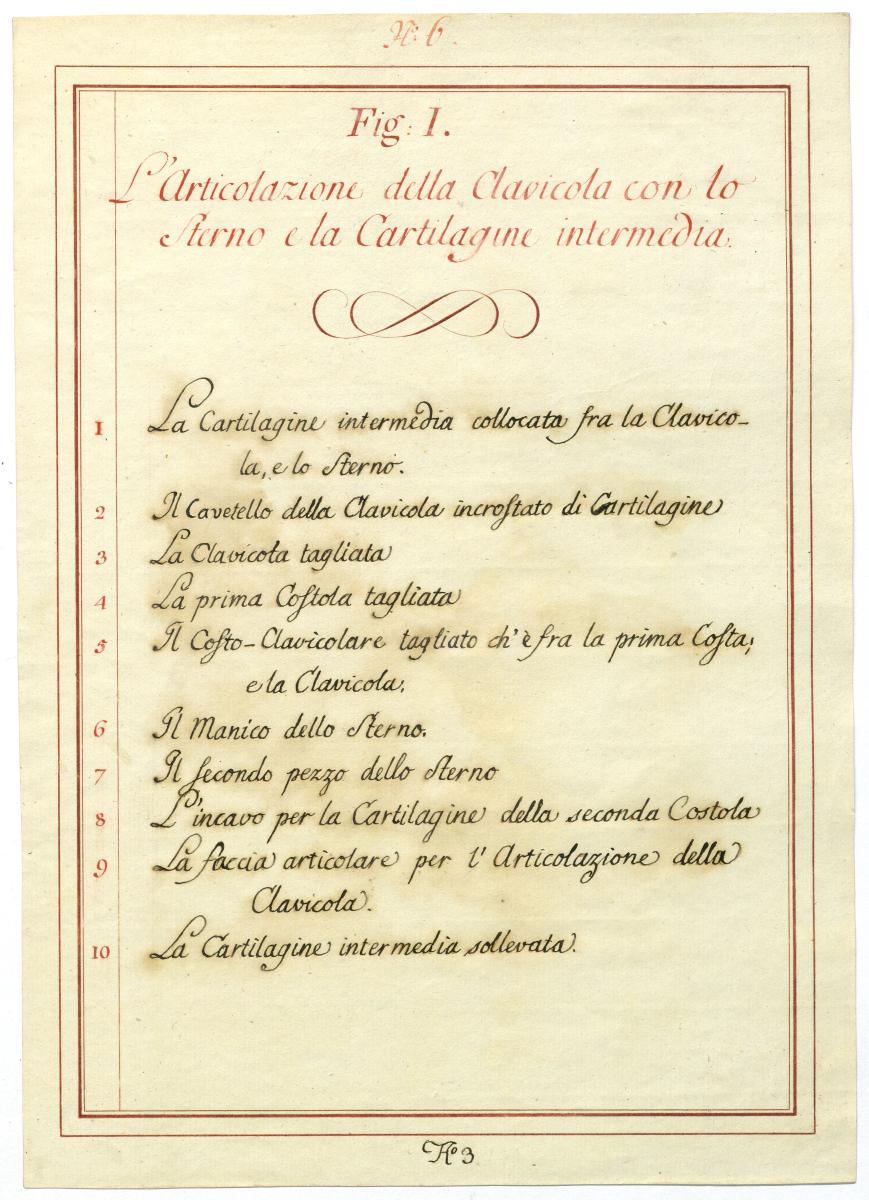 N.º 6.
Fig: I.
L'Articolazione della Clavicola con lo
Sterno e la Cartilagine intermedia.
1 La Cartilagine intermedia collocata fra la Clavico-
la, e lo Sterno.
2 Il Cavetello della Clavicola incroſtato di Cartilagine
3 La Clavicola tagliata
4 La prima Coſtola tagliata
5 Il Coſto-Clavicolare tagliato ch'è fra la prima Coſta;
e la Clavicola;
6 Il Manico dello Sterno.
7 Il ſecondo pezzo dello Sterno
8 L'incavo per la Cartilagine della seconda Costola
9 La faccia articolare per l'Articolazione della
Clavicola.
10 La Cartilagine intermedia sollevata.
Nº 3